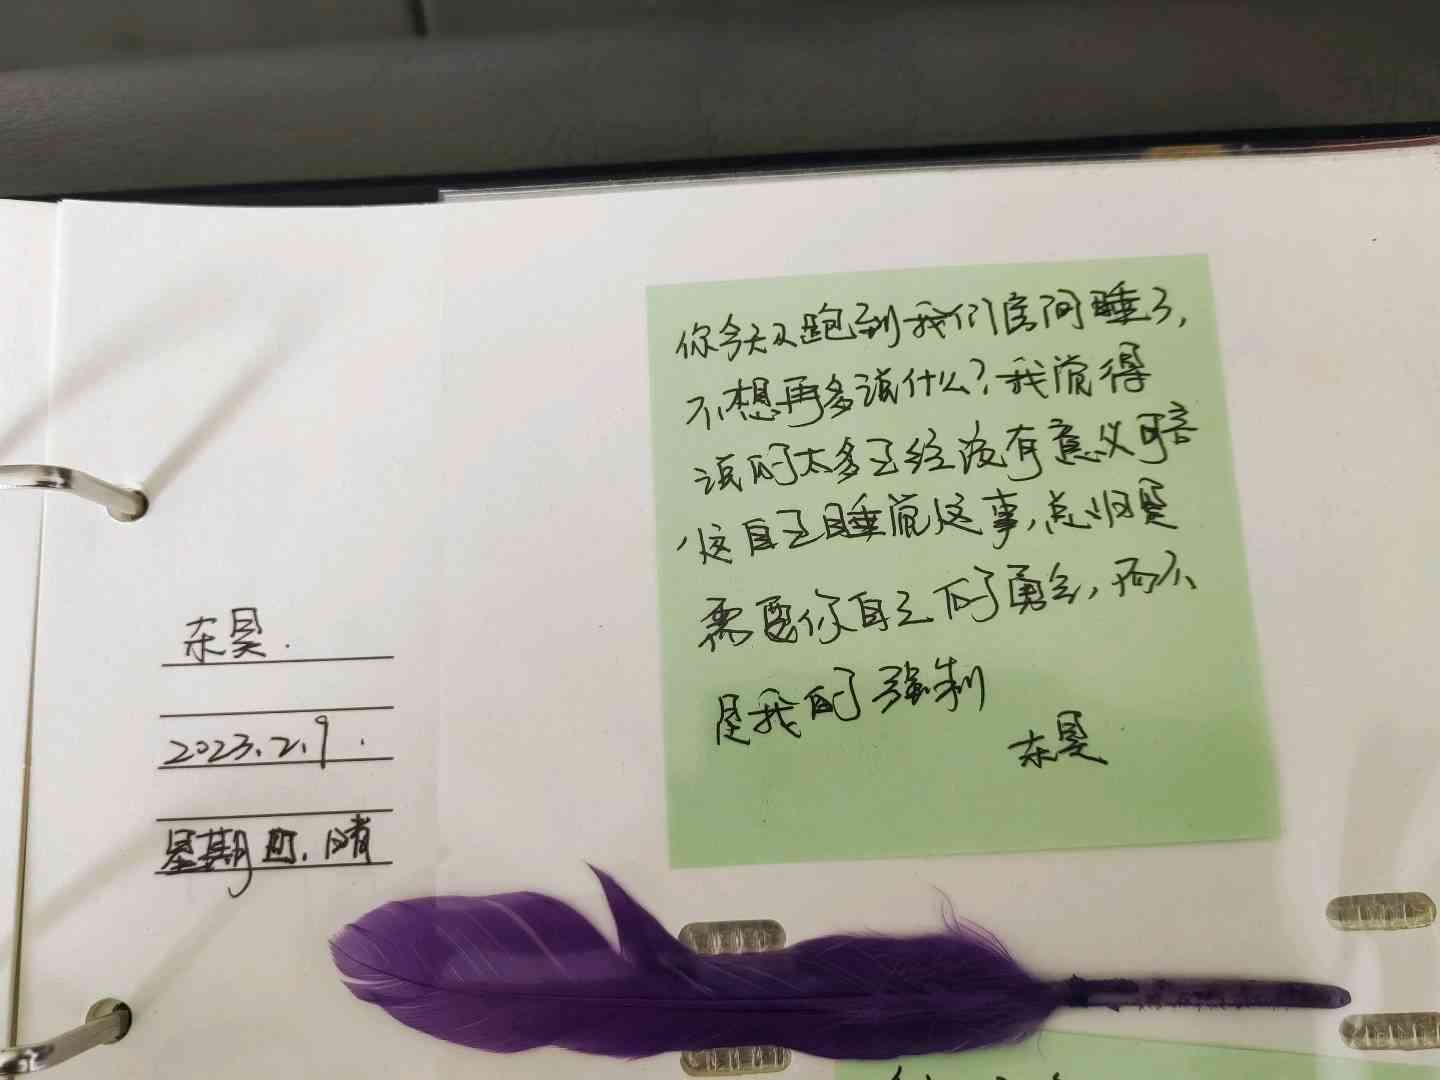 东昊.
2023.2.9.
星期四.晴
你今天又跑到我们房间睡了,
不想再多说什么?我觉得
说的太多已经没有意义
这自己睡觉这事,总归是
需要你自己的勇气,而不
是我的强制
东昊